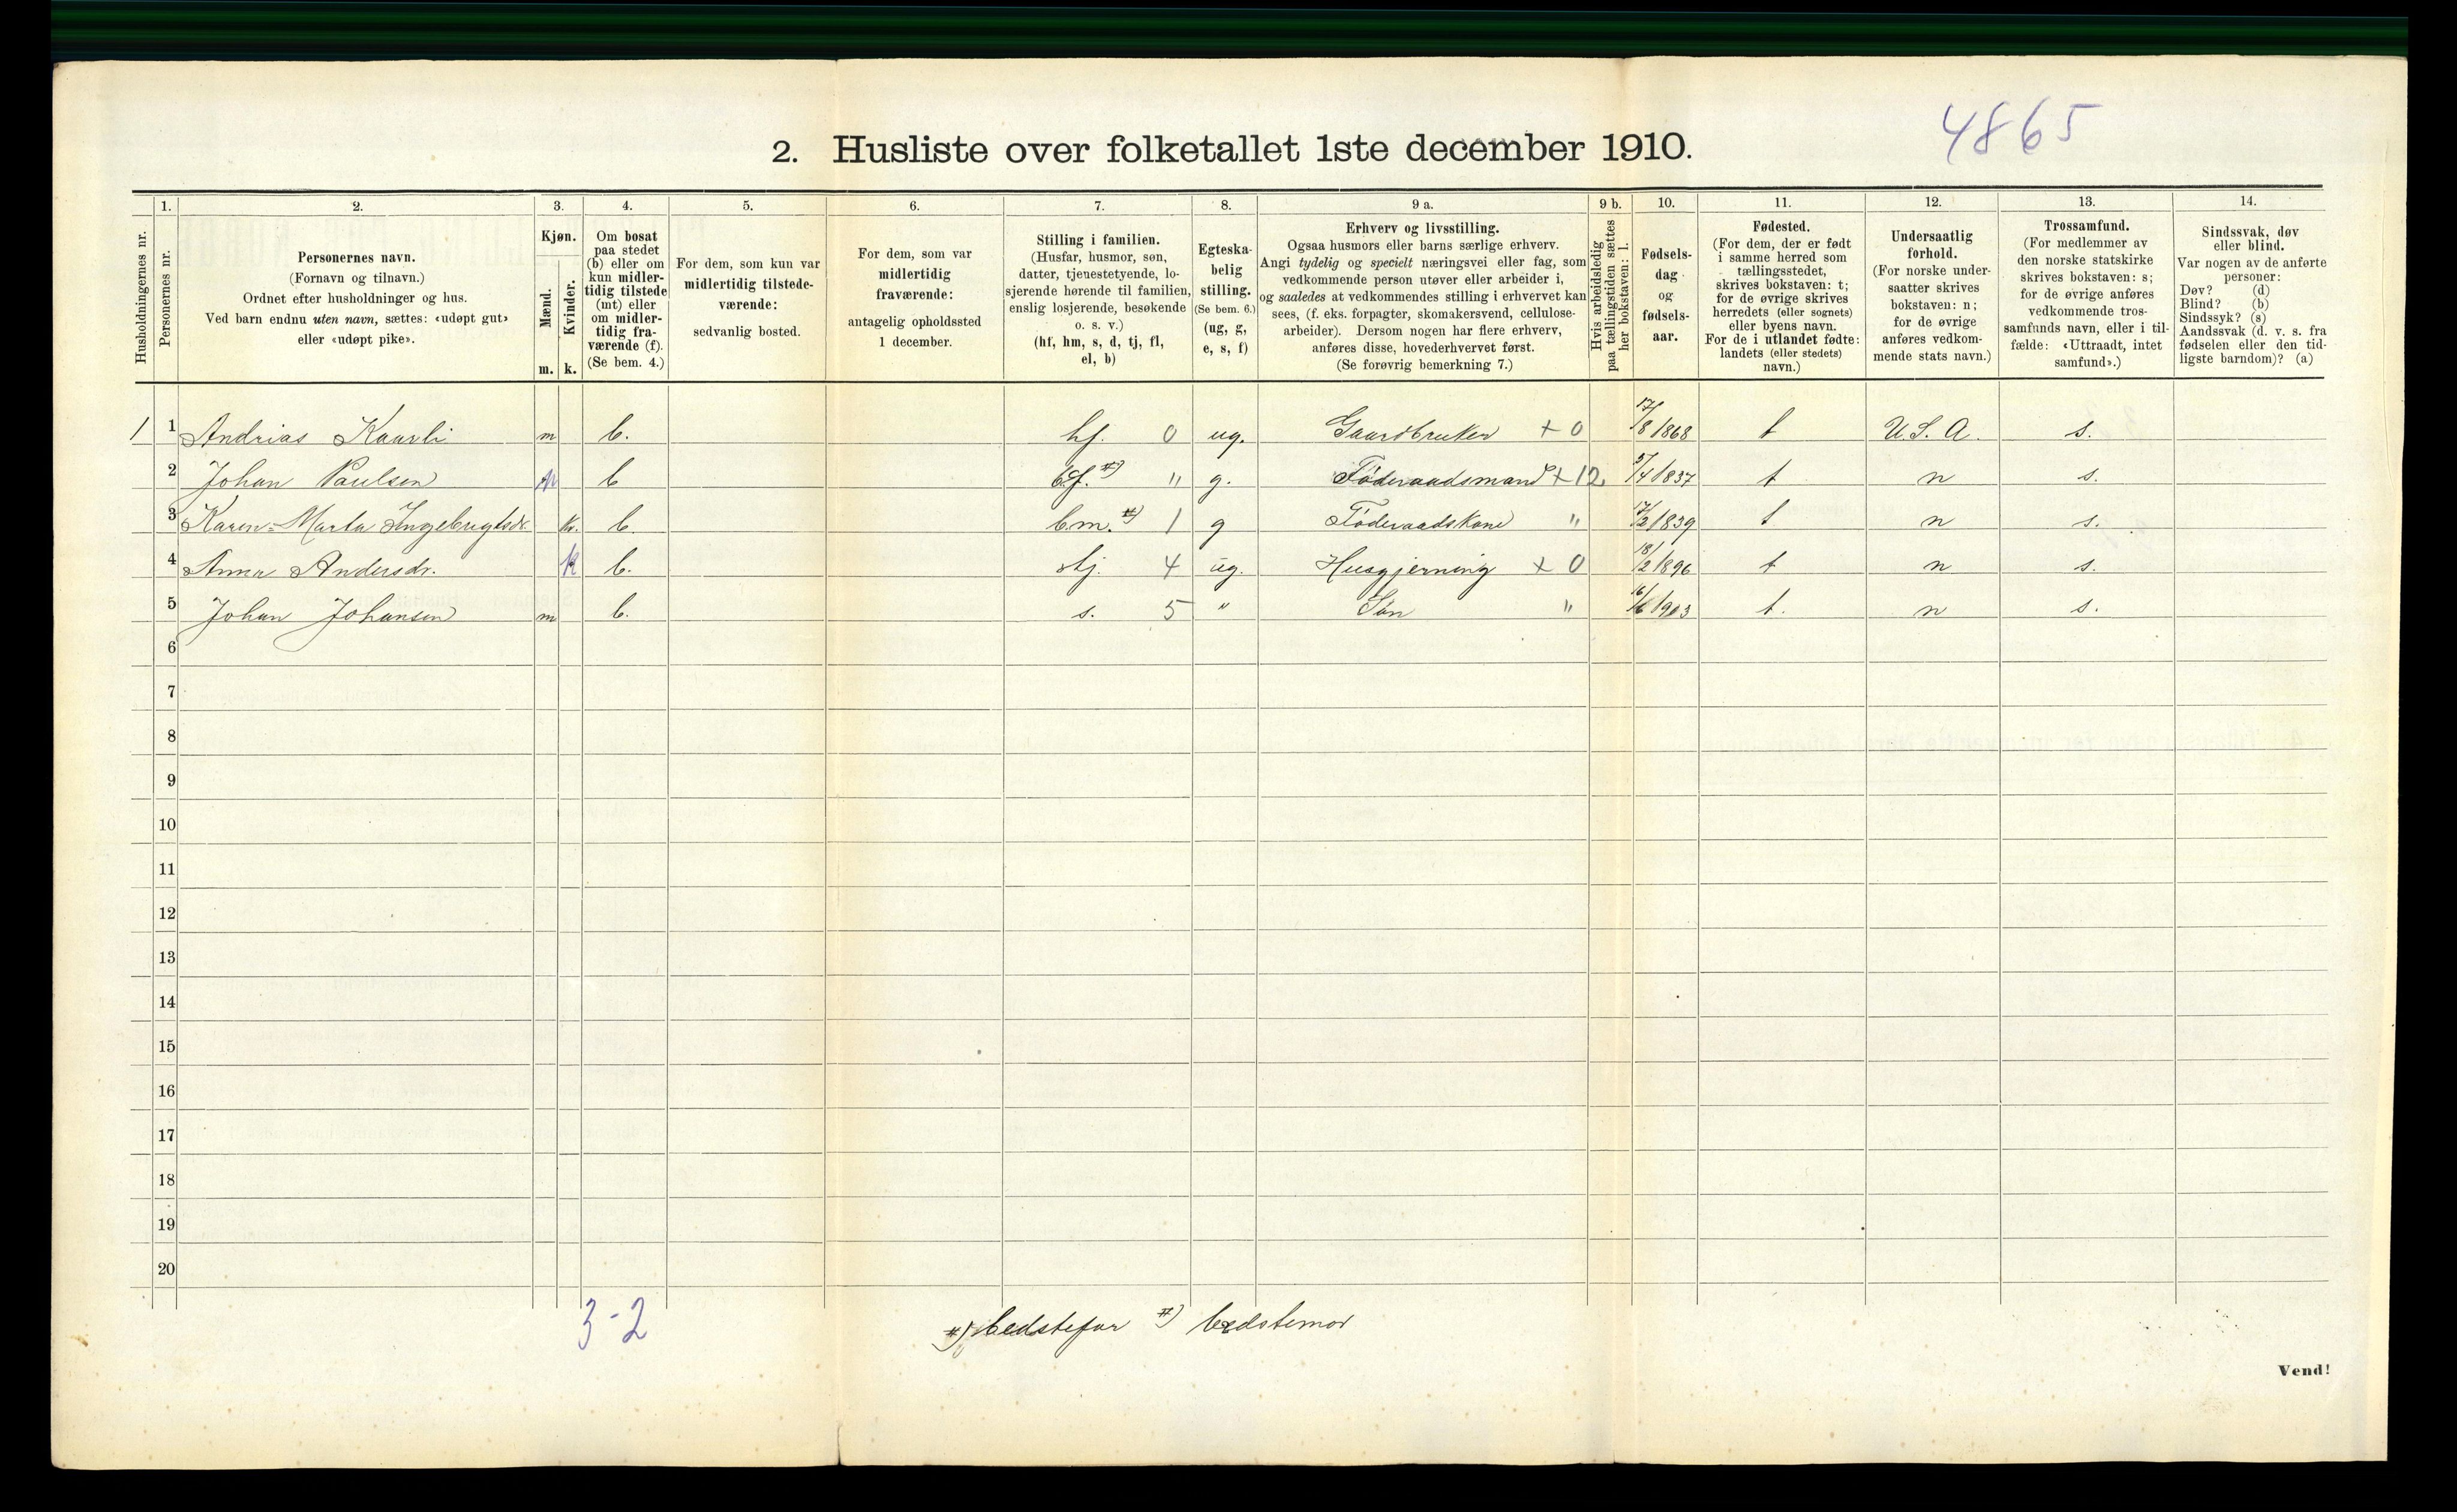 4865
2. Husliste over folketallet 1ste december 1910.
Husholdningernes nr.
1.
Personernes nr.
2.
Personernes navn.
(Fornavn og tilnavn.)
Ordnet efter husholdninger og hus.
Ved barn endnu uten navn, sættes: «udøpt gut»
eller «udøpt pike».
3.
Kjøn.
Mænd.
Kvinder.
m. k.
4.
Om bosat
paa stedet
(b) eller om
kun midler-
tidig tilstede
(mt) eller
om midler-
tidig fra-
værende (f).
(Se bem. 4.)
5.
For dem, som kun var
midlertidig tilstede-
værende:
sedvanlig bosted.
6.
For dem, som var
midlertidig
fraværende:
antagelig opholdssted
1 december.
7.
Stilling i familien.
(Husfar, husmor, søn,
datter, tjenestetyende, lo-
sjerende hørende til familien,
enslig losjerende, besøkende
o. s. v.)
(hf, hm, s, d, tj, fl,
el, b)
8.
Egteska-
belig
stilling.
(Se bem. 6.)
(ug, g,
e, s, f)
9 a.
Erhverv og livsstilling.
Ogsaa husmors eller barns særlige erhverv.
Angi tydelig og specielt næringsvei eller fag, som
vedkommende person utøver eller arbeider i,
og saaledes at vedkommendes stilling i erhvervet kan
sees, (f. eks. forpagter, skomakersvend, cellulose-
arbeider). Dersom nogen har flere erhverv,
anføres disse, hovederhvervet først.
(Se forøvrig bemerkning 7.)
9 b.
Hvis arbeidsledig
paa tællingstiden sættes
her bokstaven: l.
10.
Fødsels-
dag
og
fødsels-
aar.
11.
Fødested.
(For dem, der er født
i samme herred som
tællingsstedet,
skrives bokstaven: t;
for de øvrige skrives
herredets (eller sognets)
eller byens navn.
For de i utlandet fødte:
landets (eller stedets)
navn.)
12.
Undersaatlig
forhold.
(For norske under-
saatter skrives
bokstaven: n;
for de øvrige
anføres vedkom-
mende stats navn.)
13.
Trossamfund.
(For medlemmer av
den norske statskirke
skrives bokstaven: s;
for de øvrige anføres
vedkommende tros-
samfunds navn, eller i til-
fælde: «Uttraadt, intet
samfund».)
14.
Sindssvak, døv
eller blind.
Var nogen av de anførte
personer:
Døv? (d)
Blind? (b)
Sindssyk? (s)
Aandssvak (d. v. s. fra
fødselen eller den tid-
ligste barndom)? (a)
1 1 Andrias Kaarli m b. hf. 0 ug. Gaardbruker + 0 17/8 1868 t U.S.A. s.
2 Johan Paulsen m b bf. #) " g. Föderaadsmand + 12 5/4 1837 t n s.
3 Karen-Marta Ingebrigtsdr. k. b. bm. #) 1 g Föderaadskone " 17/2 1839 t n s.
4 Anna Andersdr. k b. tj. 4 ug. Husgjerning + 0 18/2 1896 t n s.
5 Johan Johansen m b. s. 5 " Sön " 16/6 1903 t. n s.
6
7
8
9
10
11
12
13
14
15
16
17
18
19
20
3-2
#) bedstefar #) bedstemor
Vend!